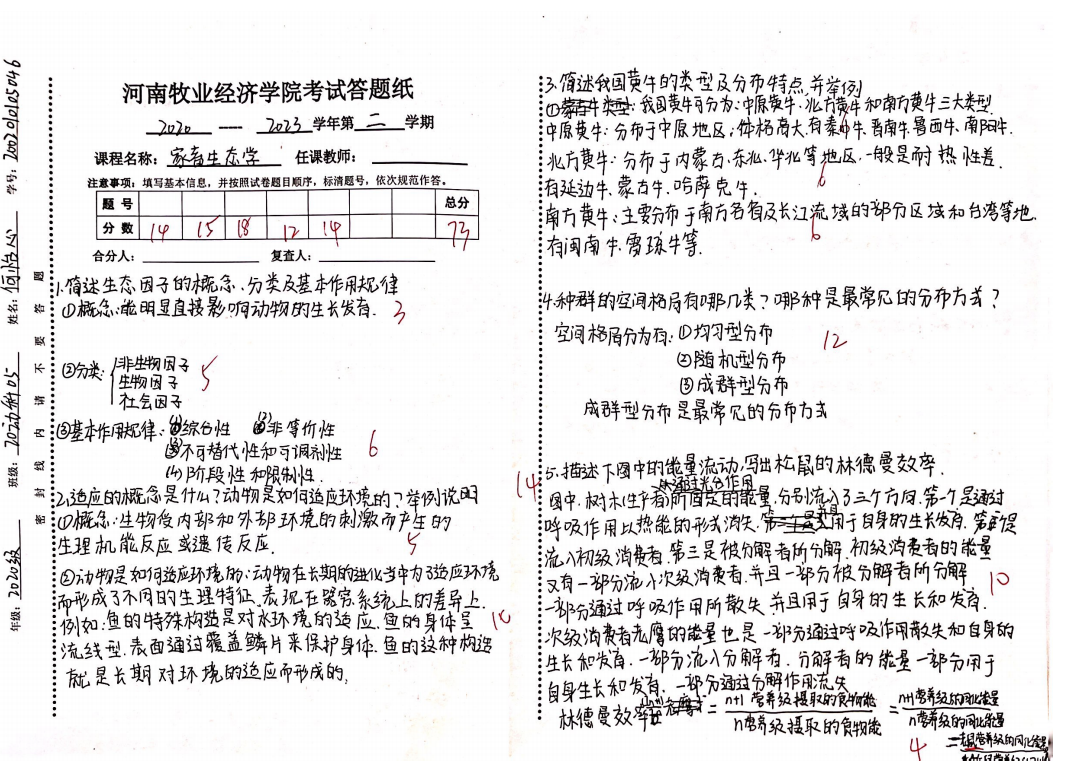 河南牧业经济学院考试答题纸
2020 —— 2023 学年第 二 学期
课程名称: 家畜生态学 任课教师:
注意事项: 填写基本信息，并按照试卷题目顺序，标清题号，依次规范作答。
题 号 总分
分 数 14 15 18 12 14 73
合分人: 复查人:
年级: 2020级 班级: 20动科05 姓名: 学号: 20020105046
密 封 线 内 请 不 要 答 题
1.简述生态因子的概念、分类及基本作用规律
①概念:能明显直接影响动物的生长发育. 3
②分类: 非生物因子
生物因子 5
社会因子
③基本作用规律: (1)综合性 (2)非等价性
(3)不可替代性和可调剂性 6
(4)阶段性和限制性.
2.适应的概念是什么?动物是如何适应环境的?举例说明
①概念:生物受内部和外部环境的刺激而产生的
生理机能反应或遗传反应. 5
②动物是如何适应环境的:动物在长期的进化当中为了适应环境
而形成了不同的生理特征、表现在器官系统上的差异上.
例如:鱼的特殊构造是对水环境的适应.鱼的身体呈 10
流线型.表面通过覆盖鳞片来保护身体.鱼的这种构造
就是长期对环境的适应而形成的.
3.简述我国黄牛的类型及分布特点,并举例
①我国黄牛可分为:中原黄牛、北方黄牛和南方黄牛三大类型.
中原黄牛:分布于中原地区,体格高大,有秦川牛、晋南牛、鲁西牛、南阳牛. 6
北方黄牛:分布于内蒙古、东北、华北等地区,一般是耐热性差.
有延边牛、蒙古牛、哈萨克牛. 6
南方黄牛:主要分布于南方各省及长江流域的部分区域和台湾等地.
有闽南牛、雷琼牛等. 6
4.种群的空间格局有哪几类?哪种是最常见的分布方式?
空间格局分为有:①均匀型分布 12
②随机型分布
③成群型分布
成群型分布是最常见的分布方式
5.描述下图中的能量流动,写出松鼠的林德曼效率.
14 通过光合作用
图中.树木(生产者)所固定的能量,分别流入了三个方向.第一个是通过
呼吸作用以热能的形式消失.并且用于自身的生长发育.第二是
流入初级消费者.第三是被分解者所分解.初级消费者的能量
又有一部分流入次级消费者.并且一部分被分解者所分解 10
一部分通过呼吸作用所散失.并且用于自身的生长和发育.
次级消费者鹰的能量也是一部分通过呼吸作用散失和自身的
生长和发育.一部分流入分解者.分解者的能量一部分用于
自身生长和发育.一部分通过分解作用流失
林德曼效率= n+1营养级摄取的食物能 / n营养级摄取的食物能 = n+1营养级的同化能量 / n营养级的同化能量
4